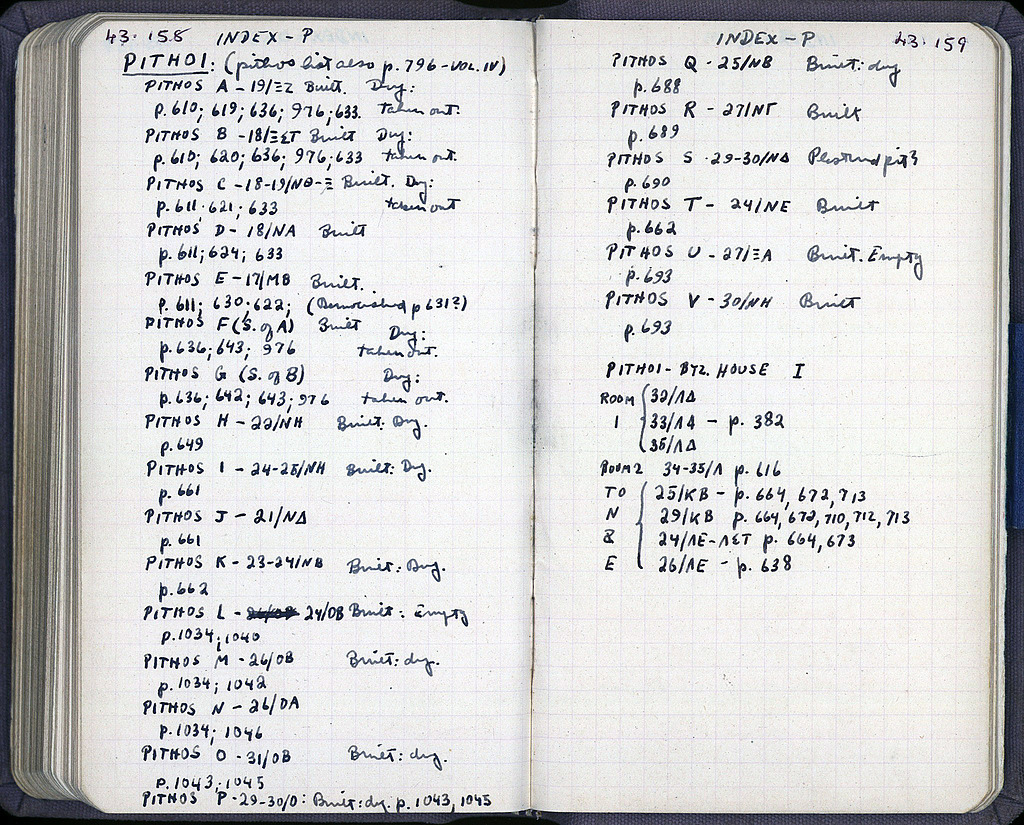 43.158 INDEX-P
PITHOI: (pithos list also p. 796-VOL. IV)
PITHOS A - 19/ΞΖ Built. Dug:
p. 610; 619; 636; 976; 633. taken out.
PITHOS B - 18/ΞΣΤ Built Dug:
p. 610; 620; 636; 976; 633 taken out.
PITHOS C - 18-19/ΝΘ-Ξ Built. Dug:
p. 611; 621; 633 taken out
PITHOS D - 18/NA Built
p. 611; 624; 633
PITHOS E - 17/MB Built.
p. 611; 630; 622; (Demolished p 631?)
PITHOS F (S. of A) Built Dug:
p. 636; 643; 976 taken out.
PITHOS G (S. of B) Dug:
p. 636; 642; 643; 976 taken out.
PITHOS H - 22/NH Built: Dug.
p. 649
PITHOS I - 24-25/NH Built: Dug.
p. 661
PITHOS J - 21/NΔ
p. 661
PITHOS K - 23-24/NB Built: Dug.
p. 662
PITHOS L - 24/OB Built: Empty
p. 1034; 1040
PITHOS M - 26/OB Built: dug.
p. 1034; 1042
PITHOS N - 26/OA
p. 1034; 1046
PITHOS O - 31/OB Built: dug.
p. 1043; 1045
PITHOS P - 29-30/O: Built: dug. p. 1043, 1045
INDEX-P 43.159
PITHOS Q - 25/NB Built: dug
p. 688
PITHOS R - 27/NΓ Built
p. 689
PITHOS S - 29-30/NΔ Plastered pit?
p. 690
PITHOS T - 24/NE Built
p. 662
PITHOS U - 27/ΞA Built. Empty
p. 693
PITHOS V - 30/NH Built
p. 693
PITHOI - BYZ. HOUSE I
ROOM 32/ΛΔ
1 33/ΛΔ - p. 382
35/ΛΔ
ROOM 2 34-35/Λ p. 616
TO 25/KB - p. 664, 672, 713
N 29/KB p. 664, 672, 710, 712, 713
& 24/ΛE-ΛΣΤ p. 664, 673
E 26/ΛE - p. 638